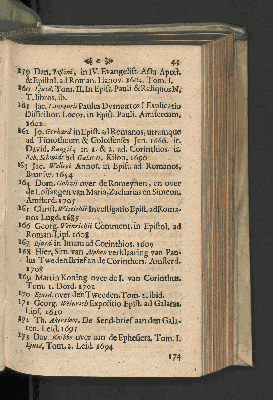 43
159 Desid. in IV. Evangelist. Acta Apost.
& Epistol. ad Roman. Hanov. Tom. I.
160 Ejusd. Tom. II. In Epist. Pauli & Reliquos N.
T. libros, ib.
161 Jac. Paulus Dysnoetos f Explicatio
Difficilior. Locor. in Epist. Pauli. Amsterdam,
162 Jo. Gerhard in Epist. ad Romanos, utramque
ad Timotheum & Colossenses Jen. 1666. in
David, in 1. & 2. ad Corinthios. in
Seb. Schmidt ad Galatas. Kilon. 1690
163 Jac. Annot. in Epist. ad Romanos,
Brunsw. 1654
164 Dom. over de Romeynen, en over
de Lofsangen van Maria, Zacharias en Simeon.
Amsterd. 1705
165 Christ. Wittichii Investigatio Epist. ad Roma-
nos Lugd. 1685
166 Georg. Weinrichii Comment. in Epistol. ad
Roman. Lips. 1608
167 Ejusd in Imam ad Corinthios. 1609
168 Hier. Sim. van Alphen verklaaring van Pau-
lus Tweeden Brief aan de Corinthers. Amsterd.
1708
169 Martin Koning over de I. van Corinthus.
Tom. 1. Dord. 1702
170 Ejusd. over den Tweeden Tom. 2. ibid.
171 Georg. Weinrich Expositio Epist. ad Galatas.
Lips. 1610
172 Th. Akersloot. De Send-brief aan den Gala-
ten. Leid. 1695
173 Dav. over aan de Ephesers. Tom. I.
Ejusd, Tom. 2. Leid. 1694
174